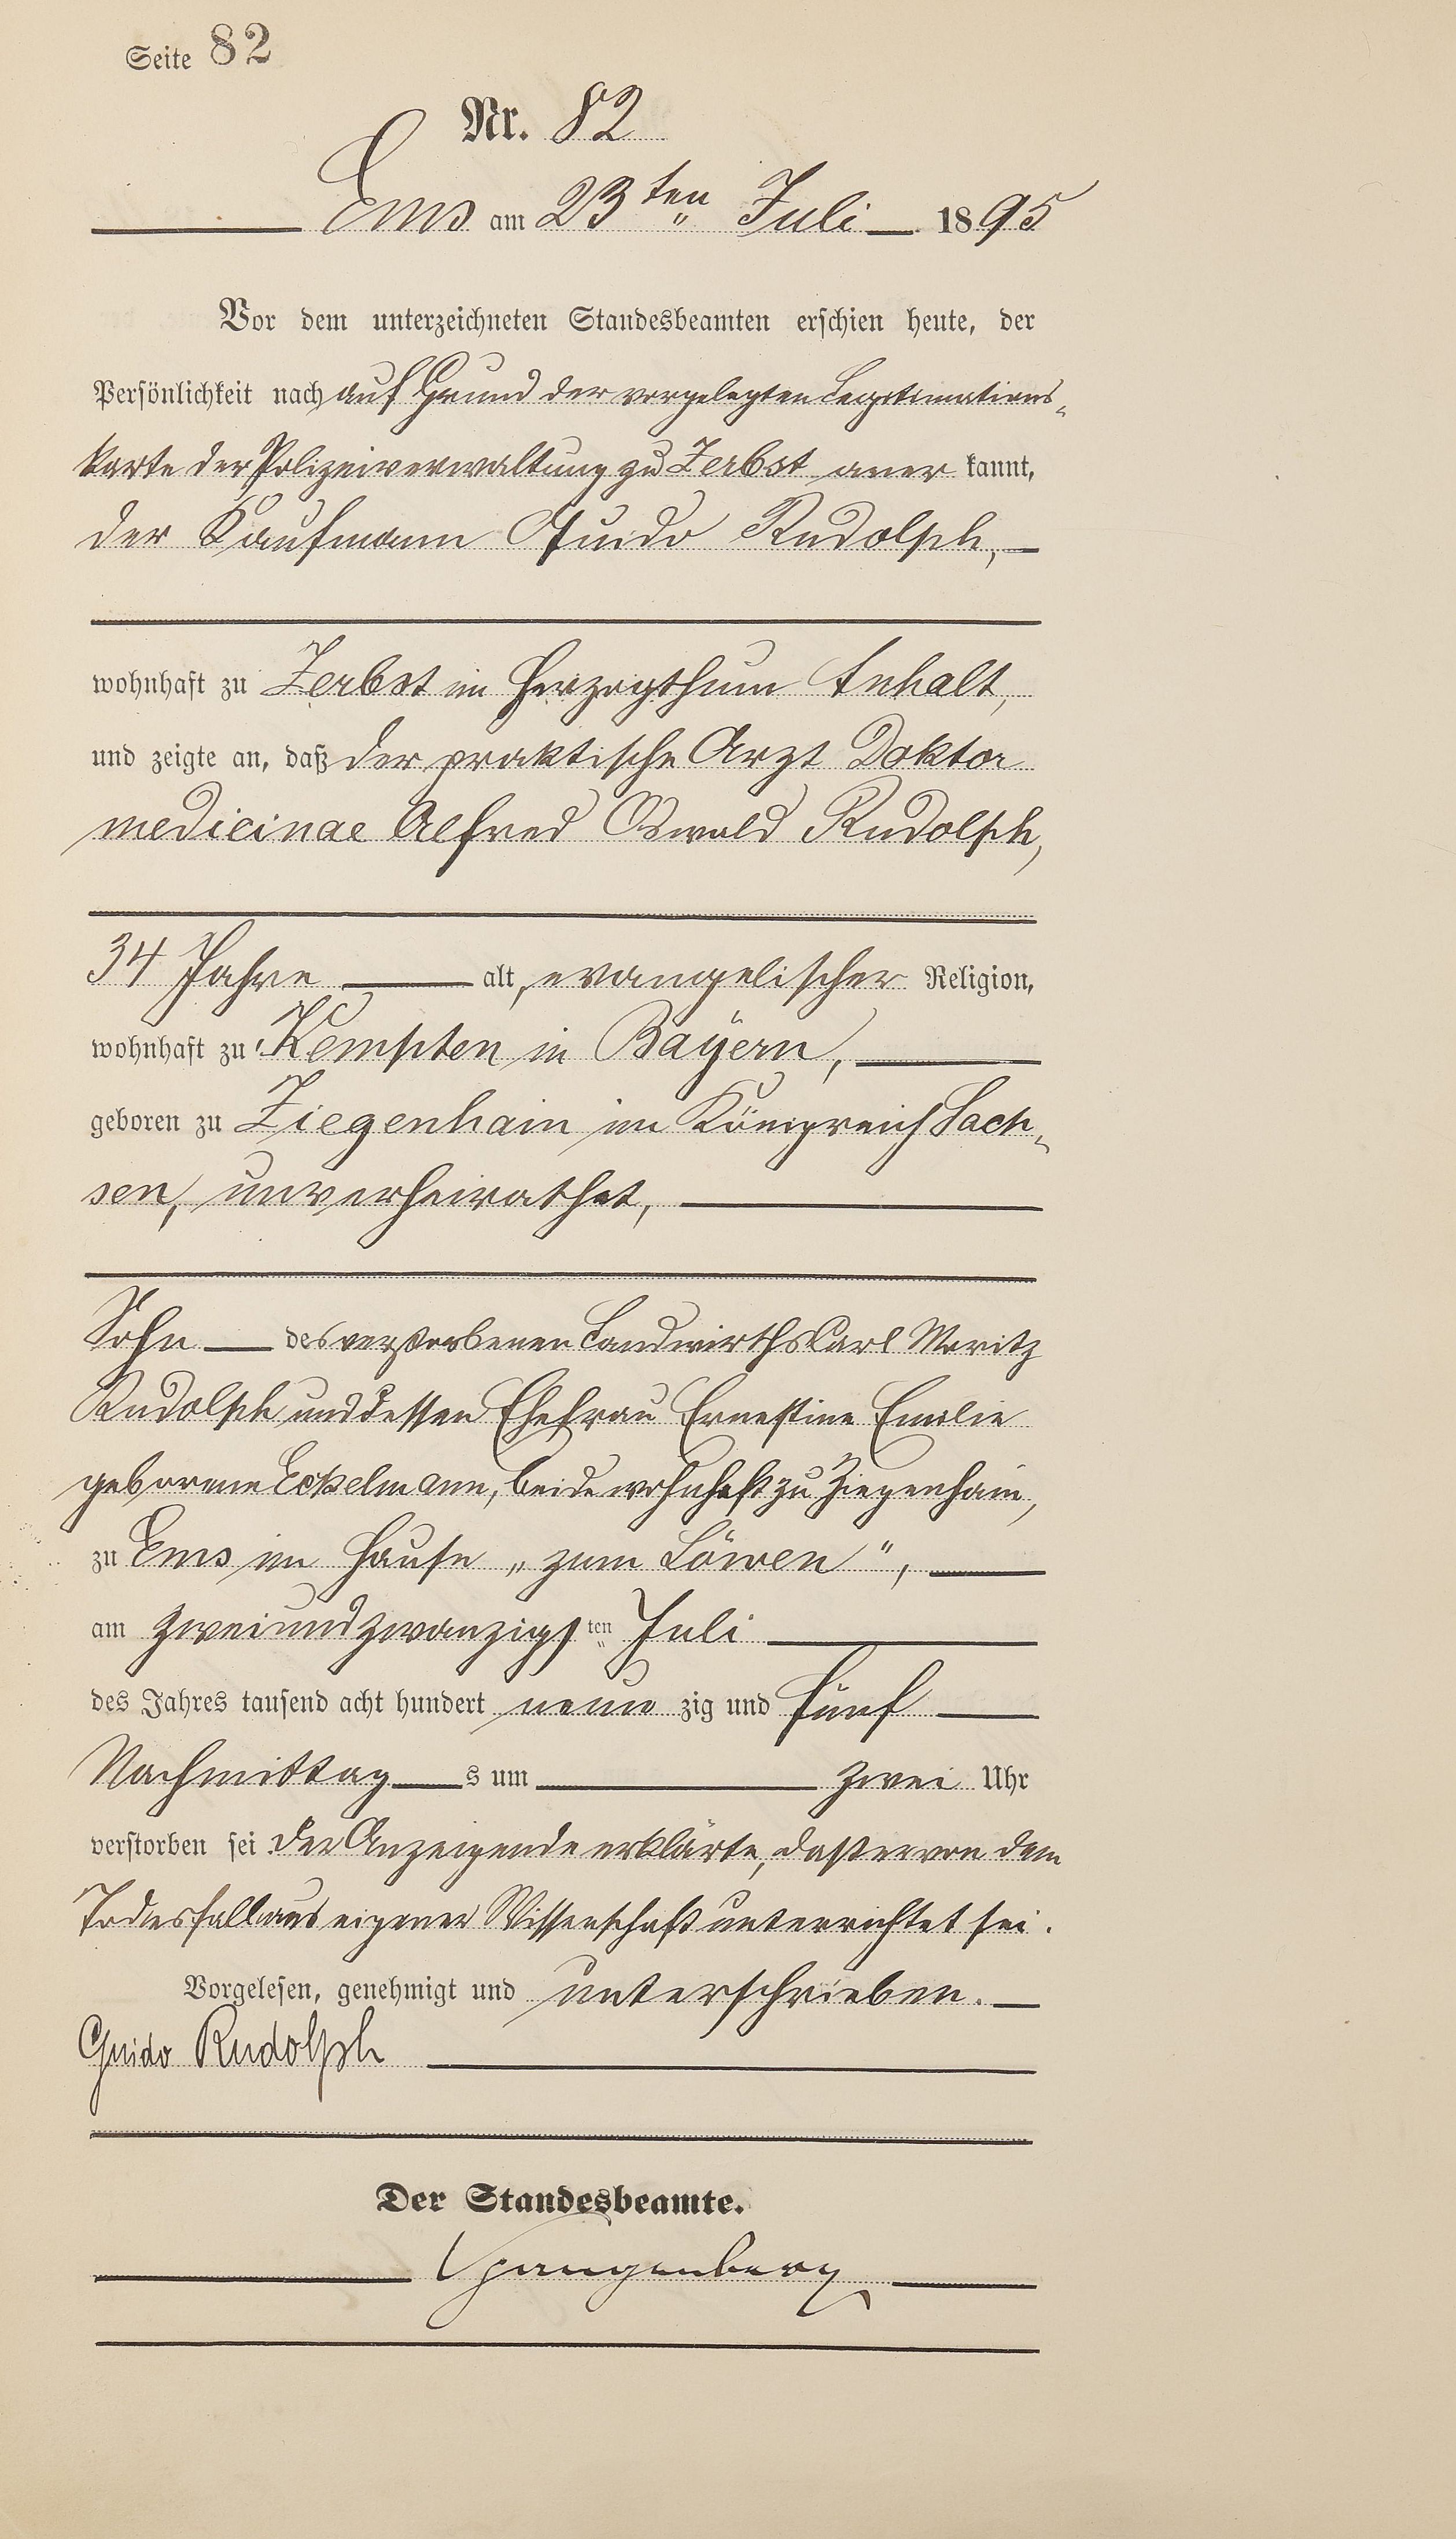 Seite 82
Nr. 82
Ems am 23ten Juli 1895
Vor dem unterzeichneten Standesbeamten erschien heute, der
Persönlichkeit nach auf Grund der vorgelegten Legitimations-
karte der Polizeiverwaltung zu Zerbst aner kannt,
der Kaufmann Guido Rudolph,
wohnhaft zu Zerbst im Herzogthum Anhalt,
und zeigte an, daß der praktische Arzt Doktor
medicinae Alfred Oswald Rudolph,
34 Jahre alt, evangelischer Religion,
wohnhaft zu Kempten in Bayern,
geboren zu Ziegenhain im Königreich Sach-
sen, unverheirathet,
Sohn des verstorbenen Landwirths Carl Moritz
Rudolph und dessen Ehefrau Ernestine Emilie
geborene Eckelmann, beide wohnhaft zu Ziegenhain,
zu Ems im Hause „zum Löwen",
am zweiundzwanzigsten Juli
des Jahres tausend acht hundert neun zig und fünf
Nachmittag s um zwei Uhr
verstorben sei. Der Anzeigende erklärte, daß er von dem
Todesfall aus eigener Wissenschaft unterrichtet sei.
Vorgelesen, genehmigt und unterschrieben.
Guido Rudolph
Der Standesbeamte.
Spangenberg